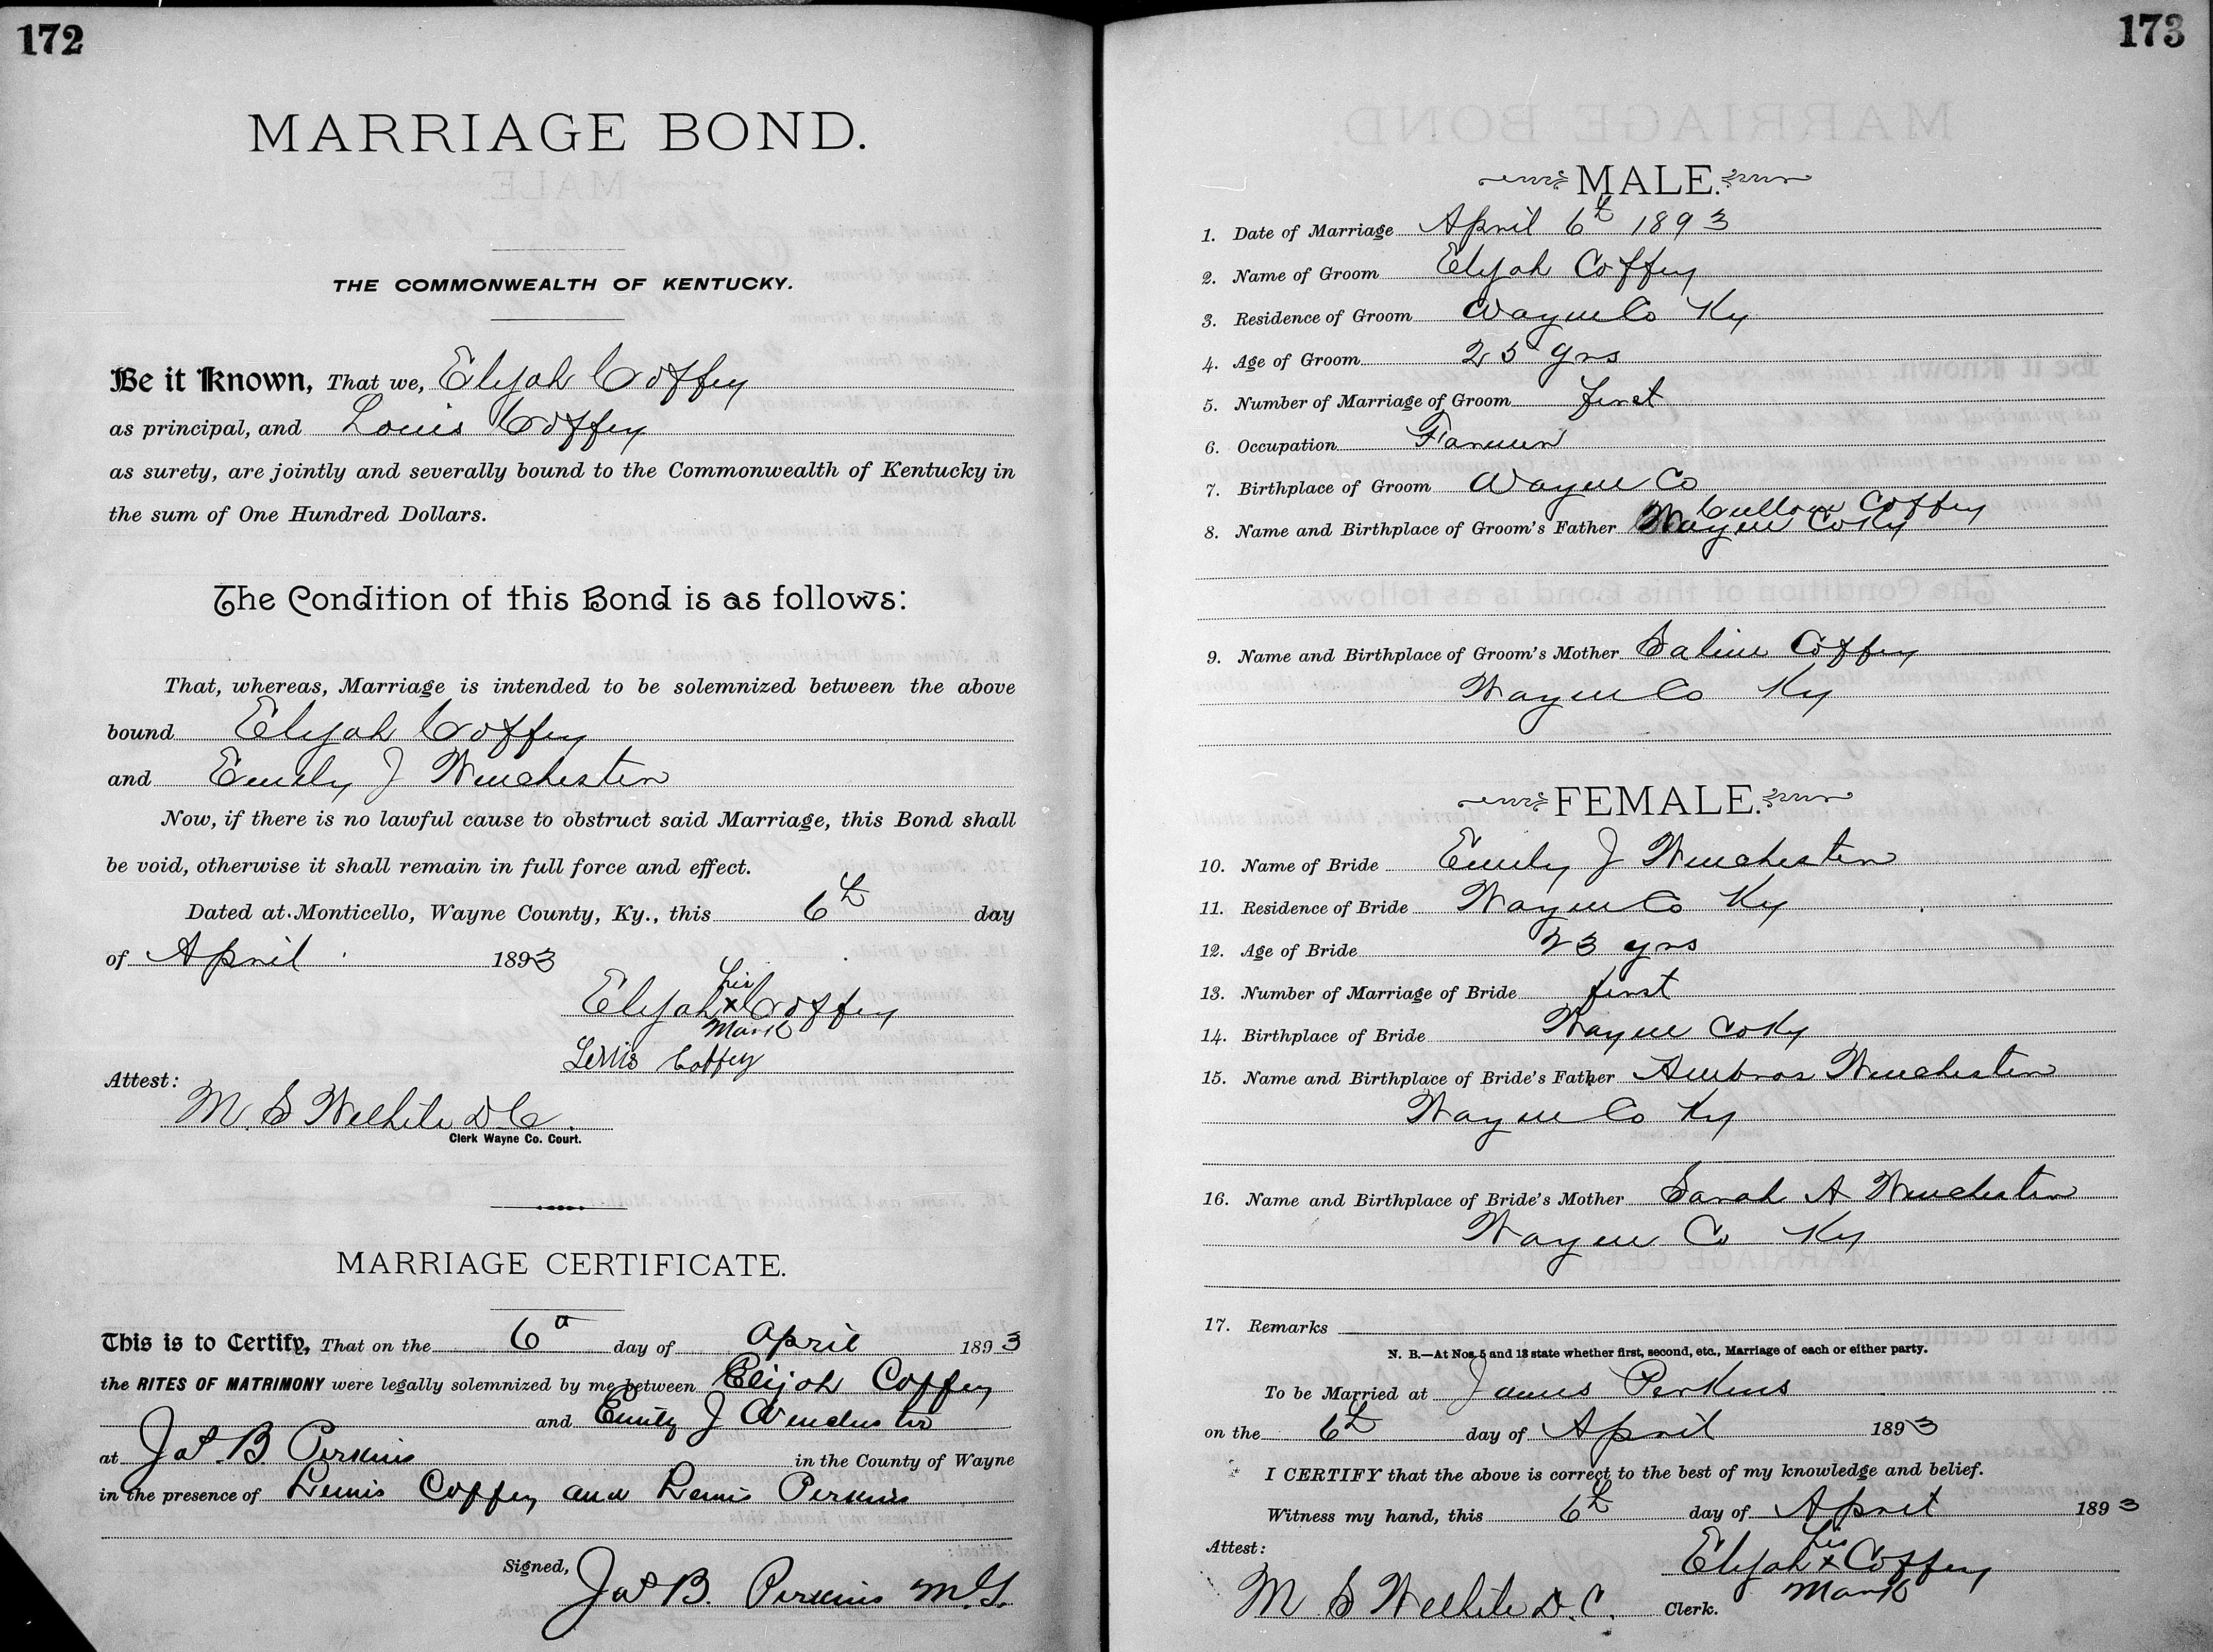 172
MARRIAGE BOND.
THE COMMONWEALTH OF KENTUCKY.
Be it Known, That we, Elijah Coffey
as principal, and Louis Coffey
as surety, are jointly and severally bound to the Commonwealth of Kentucky in
the sum of One Hundred Dollars.
The Condition of this Bond is as follows:
That, whereas, Marriage is intended to be solemnized between the above
bound Elijah Coffey
and Emily J Winchester
Now, if there is no lawful cause to obstruct said Marriage, this Bond shall
be void, otherwise it shall remain in full force and effect.
Dated at Monticello, Wayne County, Ky., this 6th day
of April 1893
his
Elijah x Coffey
Mark
Lewis Coffey
Attest:
M. S Wilhite D.C.
Clerk Wayne Co. Court.
MARRIAGE CERTIFICATE.
This is to Certify, That on the 6th day of April 1893
the RITES OF MATRIMONY were legally solemnized by me between Elijah Coffey
and Emily J Winchester
at Jas. B. Perkins in the County of Wayne
in the presence of Lewis Coffey and Lewis Perkins
Signed, Jas B. Perkins M.G.
173
MALE.
1. Date of Marriage April 6th 1893
2. Name of Groom Elijah Coffey
3. Residence of Groom Wayne Co Ky
4. Age of Groom 25 yrs
5. Number of Marriage of Groom first
6. Occupation Farmer
7. Birthplace of Groom Wayne Co
Cullom Coffey
8. Name and Birthplace of Groom's Father Wayne Co Ky
9. Name and Birthplace of Groom's Mother Saline Coffey
Wayne Co Ky
FEMALE.
10. Name of Bride Emily J Winchester
11. Residence of Bride Wayne Co Ky
12. Age of Bride 23 yrs
13. Number of Marriage of Bride first
14. Birthplace of Bride Wayne Co Ky
15. Name and Birthplace of Bride's Father Ambros Winchester
Wayne Co Ky
16. Name and Birthplace of Bride's Mother Sarah A Winchester
Wayne Co Ky
17. Remarks
N. B.—At Nos. 5 and 13 state whether first, second, etc., Marriage of each or either party.
To be Married at James Perkins
on the 6th day of April 1893
I CERTIFY that the above is correct to the best of my knowledge and belief.
Witness my hand, this 6th day of April 1893
Attest:
his
Elijah x Coffey
Mark
M S Wilhite D.C. Clerk.